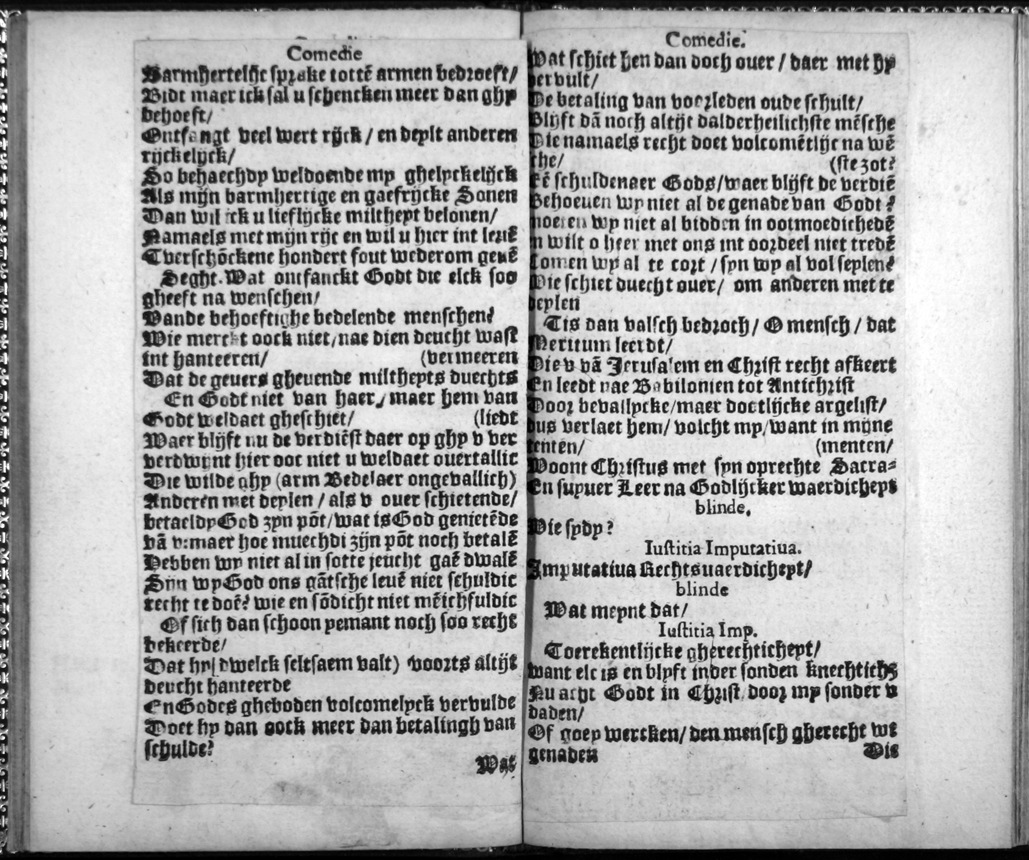 Comedie
Barmhertelijc sprake tottē armen bedroeft/
Bidt maer ick sal u schencken meer dan ghy
behoeft/
Ontfangt veel wert rijck / en deylt anderen
rijckelijck/
So behaechdy weldoende my ghelyckelijck
Als mijn barmhertige en gaefrijcke Sonen
Dan wil ick u lieflijcke miltheyt belonen/
Namaels met mijn rijc en wil u hier int levē
Tverschōckene hondert fout wederom gevē
Seght. Wat ontfanckt Godt die elck soo
gheeft na wenschen/
Vande behoeftighe bedelende menschen?
Wie merckt oock niet/nae dien deucht wast
int hanteeren/ (vermeeren
Dat de gevers ghevende miltheyts duechts
En Godt niet van haer/ maer hem van
Godt weldaet gheschiet/ (liedt
Waer blijft nu de verdiēst daer op ghy v ver
verdwynt hier ooc niet u weldaet overtallic
Die wilde ghy (arm Bedelaer ongevallich)
Anderen met deylen / als v over schietende/
betaeldy God zyn pōt/wat is God genietēde
vā v:maer hoe muechdi zijn pōt noch betalē
Hebben wy niet al in sotte jeucht gaē dwalē
Sijn wy God ons gātsche levē niet schuldic
recht te doē? wie en sōdicht niet mēichfuldic
Of sich dan schoon yemant noch soo recht
bekeerde/
Dat hy( dwelck seltsaem valt) voorts altijt
deucht hanteerde
En Godes gheboden volcomelyck vervulde
Doet hy dan oock meer dan betalingh van
schulde?
Wat
Comedie.
Wat schiet hen dan doch over / daer met hy
vervult/
De betaling van voorleden oude schult/
Blijft dā noch altijt dalderheilichste mēsche
Die namaels recht doet volcomētlijc na wē
sche/ (ste zot?
Eē schuldenaer Gods/waer blijft de verdiē
Behoeven wy niet al de genade van Godt?
moeten wy niet al bidden in ootmoedichedē
n wilt o heer met ons int oordeel niet tredē
Comen wy al te cort / syn wy al vol feylen?
Wie schiet duecht over/ om anderen met te
deylen
Tis dan valsch bedroch/ O mensch / dat
Meritum leerdt/
Die v vā Jerusalem en Christ recht afkeert
En leedt nae Babilonien tot Antichrist
Door bevallycke/maer doctlijcke argelist/
dus verlaet hem/ volcht my/want in mijne
tenten/ (menten/
Woont Christus met syn oprechte Sacra-
En suyver Leer na Godlijcker waerdicheyt
blinde.
Wie sydy?
Iustitia Imputativa.
Imputativa Rechtsvaerdicheyt/
blinde
Wat meynt dat/
Iustitia Imp.
Toerekentlijcke gherechticheyt/
want elc is en blyft inder sonden knechtichz
Nu acht Godt in Christ door my sonder v
daden/
Of goey wercken/ den mensch gherecht wt
genaden
Die